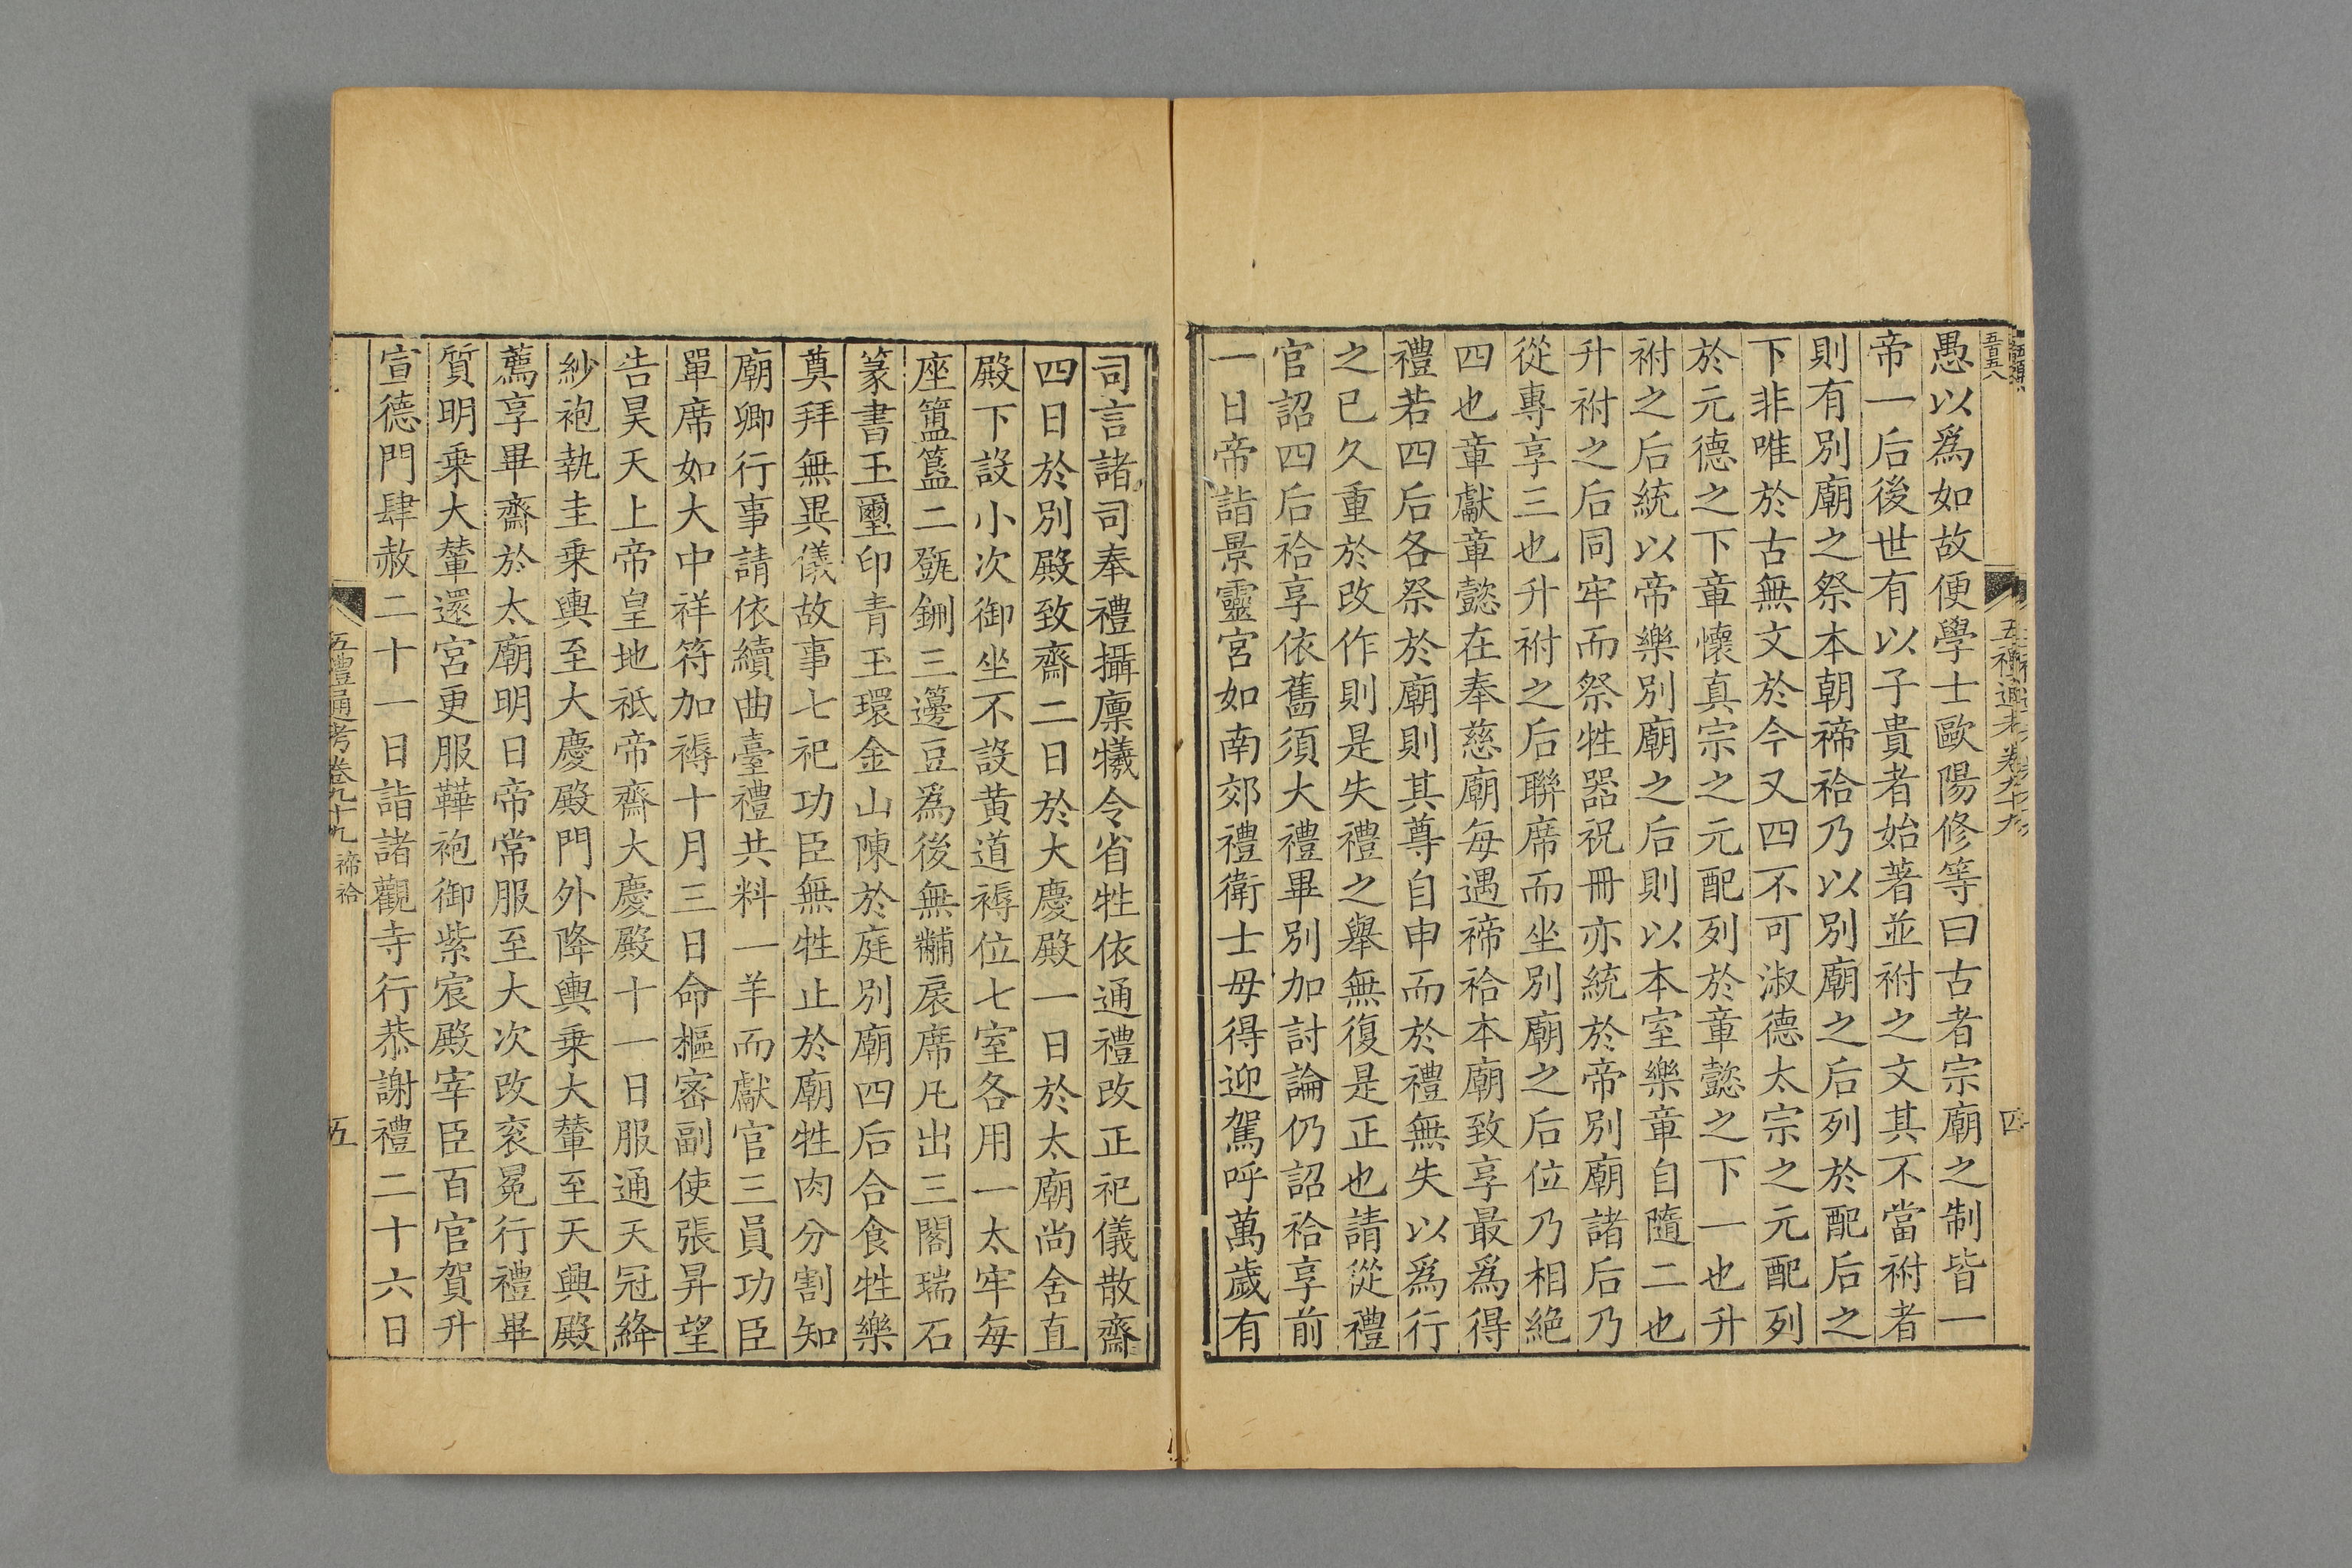 五百五八
五禮通考卷九十九
四
愚以爲如故便學士歐陽修等曰古者宗廟之制皆一
帝一后後世有以子貴者始著並祔之文其不當祔者
則有別廟之祭本朝禘祫乃以別廟之后列於配后之
下非唯於古無文於今又四不可淑德太宗之元配列
於元德之下章懷真宗之元配列於章懿之下一也升
祔之后統以帝樂別廟之后則以本室樂章自隨二也
升祔之后同牢而祭牲器祝冊亦統於帝別廟諸后乃
從專享三也升祔之后聯席而坐別廟之后位乃相絕
四也章獻章懿在奉慈廟每遇禘祫本廟致享最爲得
禮若四后各祭於廟則其尊自申而於禮無失以爲行
之已久重於改作則是失禮之舉無復是正也請從禮
官詔四后祫享依舊須大禮畢別加討論仍詔祫享前
一日帝詣景靈宮如南郊禮衛士毋得迎駕呼萬歲有
司言諸司奉禮攝廩犧令省牲依通禮改正祀儀散齋
四日於別殿致齋二日於大慶殿一日於太廟尚舍直
殿下設小次御坐不設黃道褥位七室各用一太牢每
座簠簋二㽅鉶三籩豆爲後無黼扆席几出三閣瑞石
篆書玉璽印青玉環金山陳於庭別廟四后合食牲樂
奠拜無異儀故事七祀功臣無牲止於廟牲肉分割知
廟卿行事請依續曲臺禮共料一羊而獻官三員功臣
單席如大中祥符加褥十月三日命樞密副使張昇望
告昊天上帝皇地祇帝齋大慶殿十一日服通天冠絳
紗袍執圭乘輿至大慶殿門外降輿乘大輦至天興殿
薦享畢齋於太廟明日帝常服至大次改衮冕行禮畢
質明乘大輦還宮更服鞾袍御紫宸殿宰臣百官賀升
宣德門肆赦二十一日詣諸觀寺行恭謝禮二十六日
五禮通考卷九十九 禘祫
五